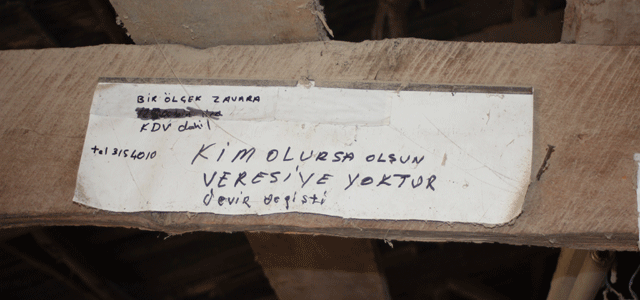 BİR ÖLÇEK ZAVARA
KDV dahil
tel 3154010
KİM OLURSA OLSUN
VERESİYE YOKTUR
devir değişti